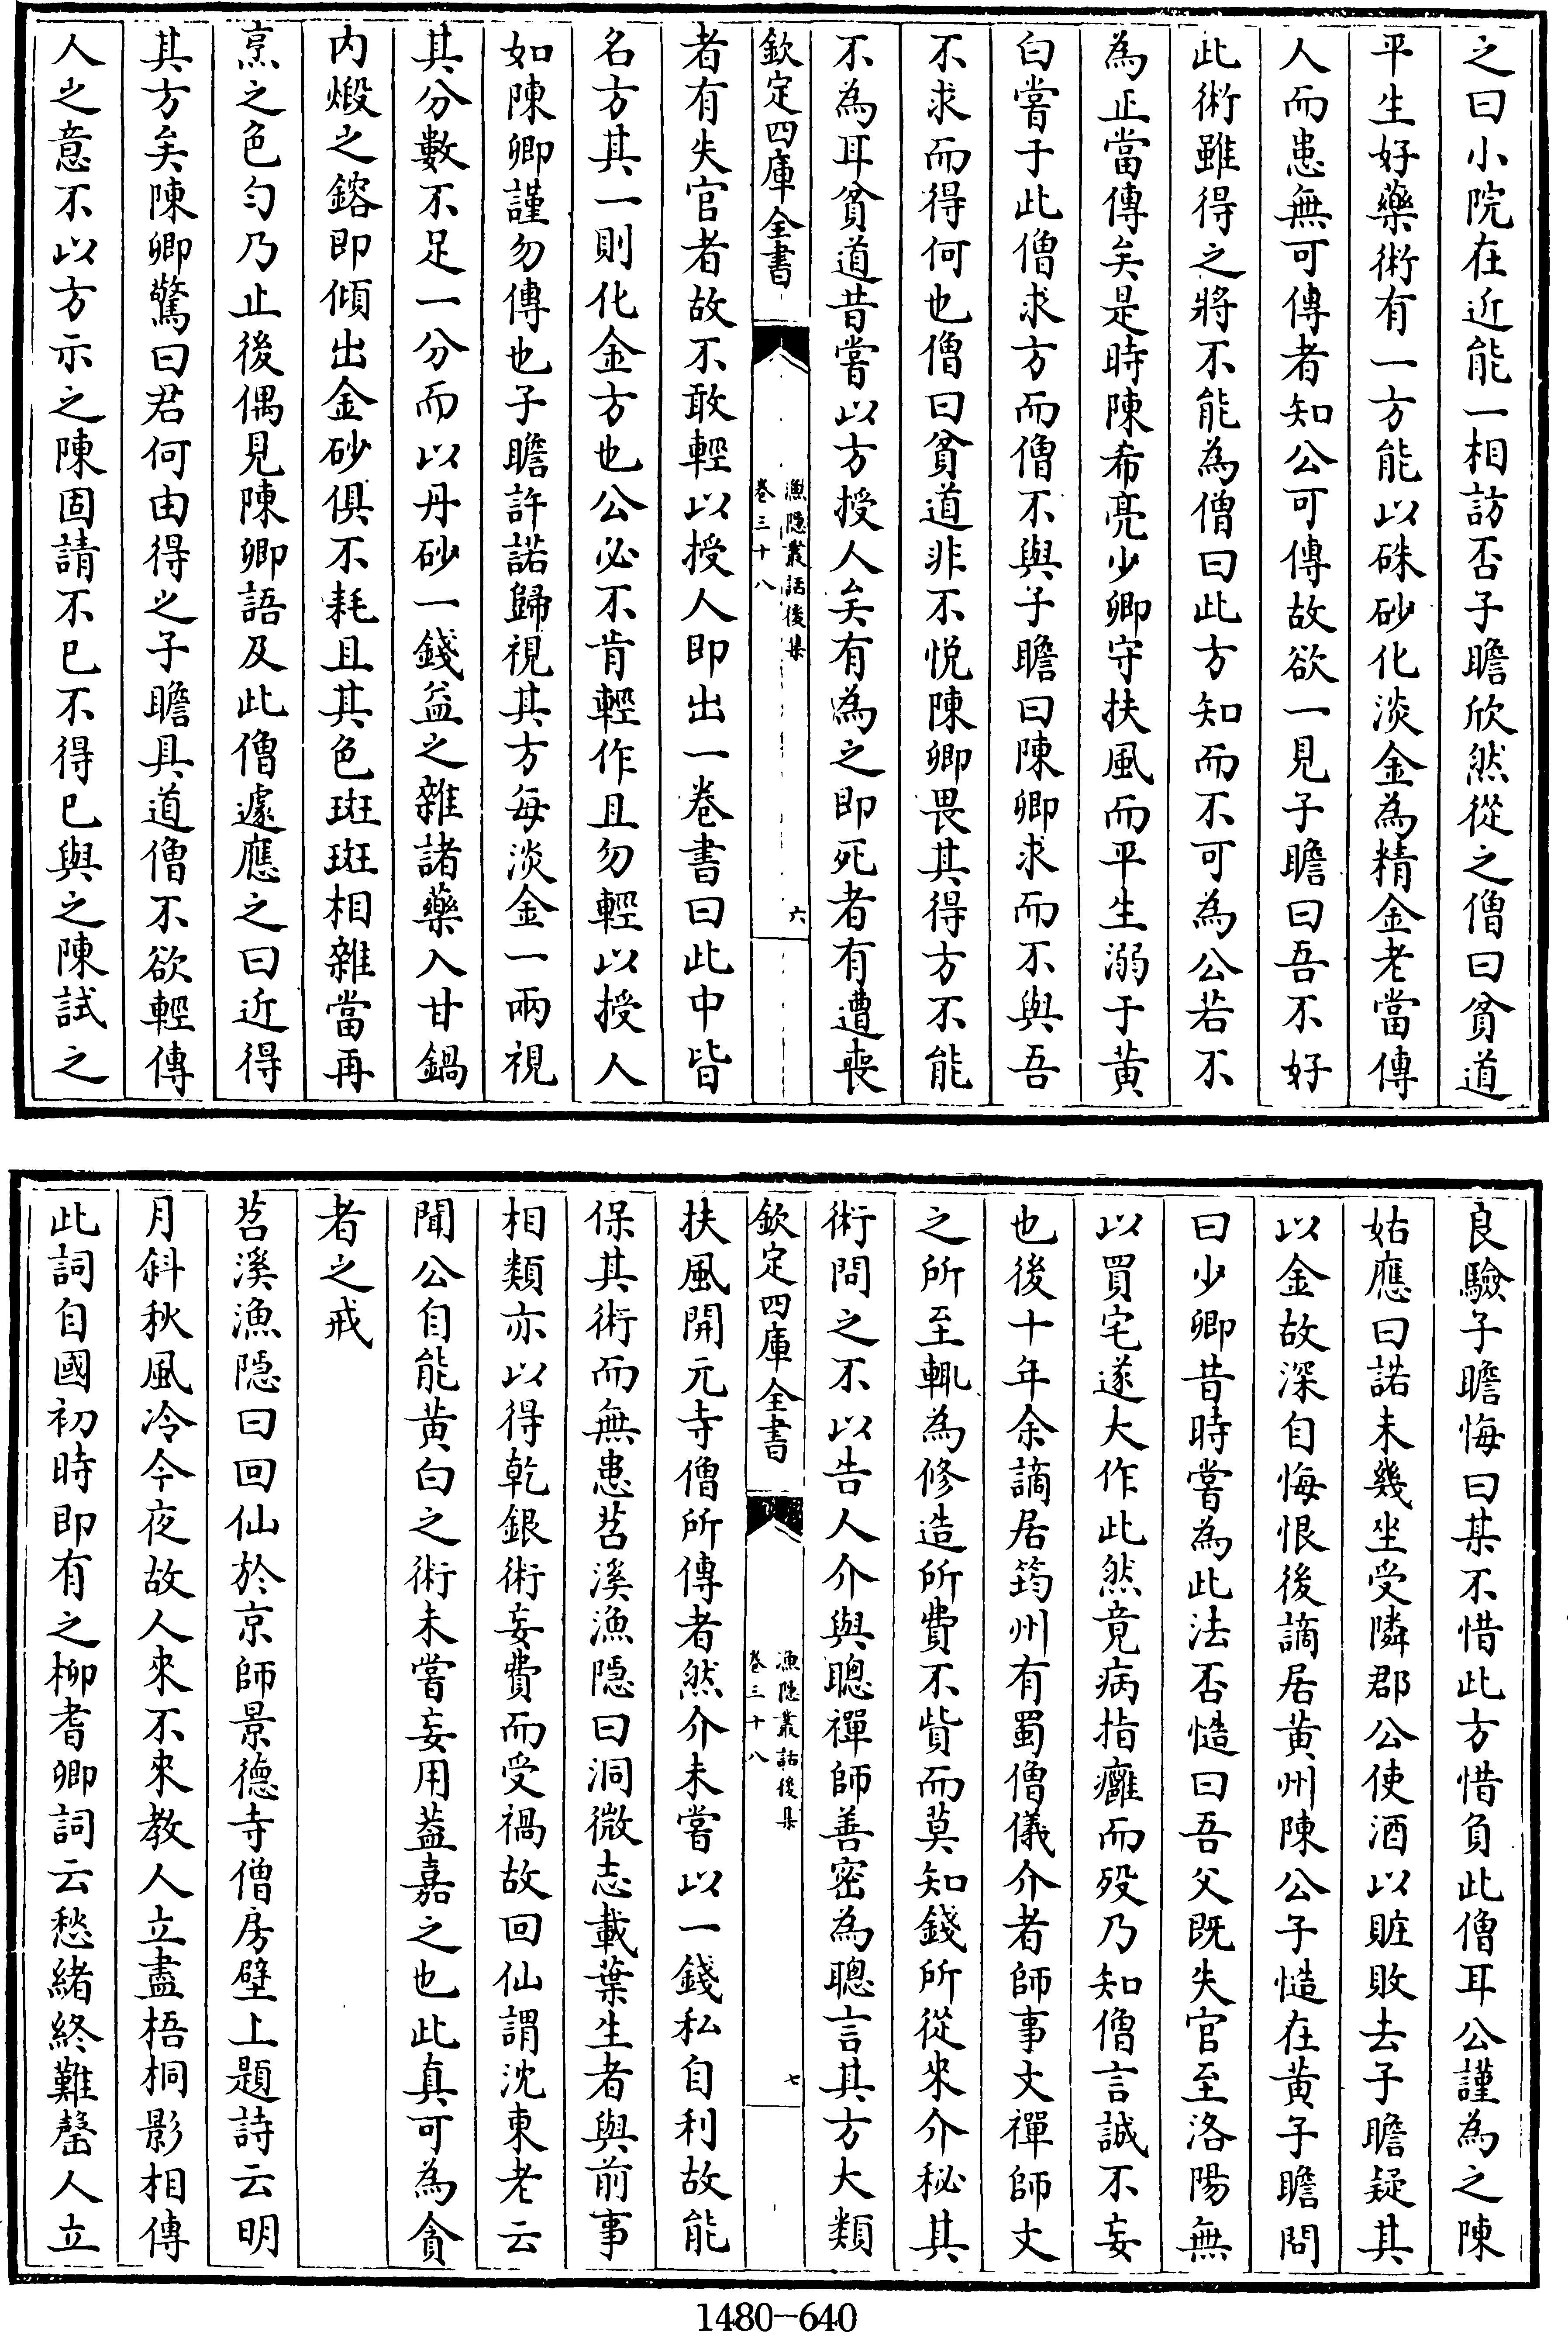 之曰小院在近能一相訪否子瞻欣然從之僧曰貧道
平生好藥術有一方能以硃砂化淡金為精金老當傳
人而患無可傳者知公可傳故欲一見子瞻曰吾不好
此術雖得之將不能為僧曰此方知而不可為公若不
為正當傳矣是時陳希亮少卿守扶風而平生溺于黄
白嘗于此僧求方而僧不與子瞻曰陳卿求而不與吾
不求而得何也僧曰貧道非不悦陳卿畏其得方不能
不為耳貧道昔嘗以方授人矣有為之即死者有遭喪
欽定四庫全書
漁隱叢話後集
卷三十八
六
者有失官者故不敢輕以授人即出一卷書曰此中皆
名方其一則化金方也公必不肯輕作且勿輕以授人
如陳卿謹勿傳也子瞻許諾歸視其方每淡金一兩視
其分數不足一分而以丹砂一錢益之雜諸藥入甘鍋
内煅之鎔即傾出金砂俱不耗且其色斑斑相雜當再
烹之色勻乃止後偶見陳卿語及此僧遽應之曰近得
其方矣陳卿驚曰君何由得之子瞻具道僧不欲輕傳
人之意不以方示之陳固請不已不得已與之陳試之
良驗子瞻悔曰某不惜此方惜負此僧耳公謹為之陳
姑應曰諾未幾坐受隣郡公使酒以賍敗去子瞻疑其
以金故深自悔恨後謫居黄州陳公子慥在黄子瞻問
曰少卿昔時嘗為此法否慥曰吾父既失官至洛陽無
以買宅遂大作此然竟病指癰而殁乃知僧言誠不妄
也後十年余謫居筠州有蜀僧儀介者師事文禪師文
之所至輒為修造所費不貲而莫知錢所從來介秘其
術問之不以告人介與聰禪師善密為聰言其方大類
欽定四庫全書
漁隱叢話後集
卷三十八
七
扶風開元寺僧所傳者然介未嘗以一錢私自利故能
保其術而無患苕溪漁隱曰洞微志載葉生者與前事
相類亦以得乾銀術妄費而受禍故回仙謂沈東老云
聞公自能黄白之術未嘗妄用葢嘉之也此真可為貪
者之戒
苕溪漁隱曰回仙於京師景德寺僧房壁上題詩云明
月斜秋風冷今夜故人來不來教人立盡梧桐影相傳
此詞自國初時即有之柳耆卿詞云愁緒終難罄人立
1480-640